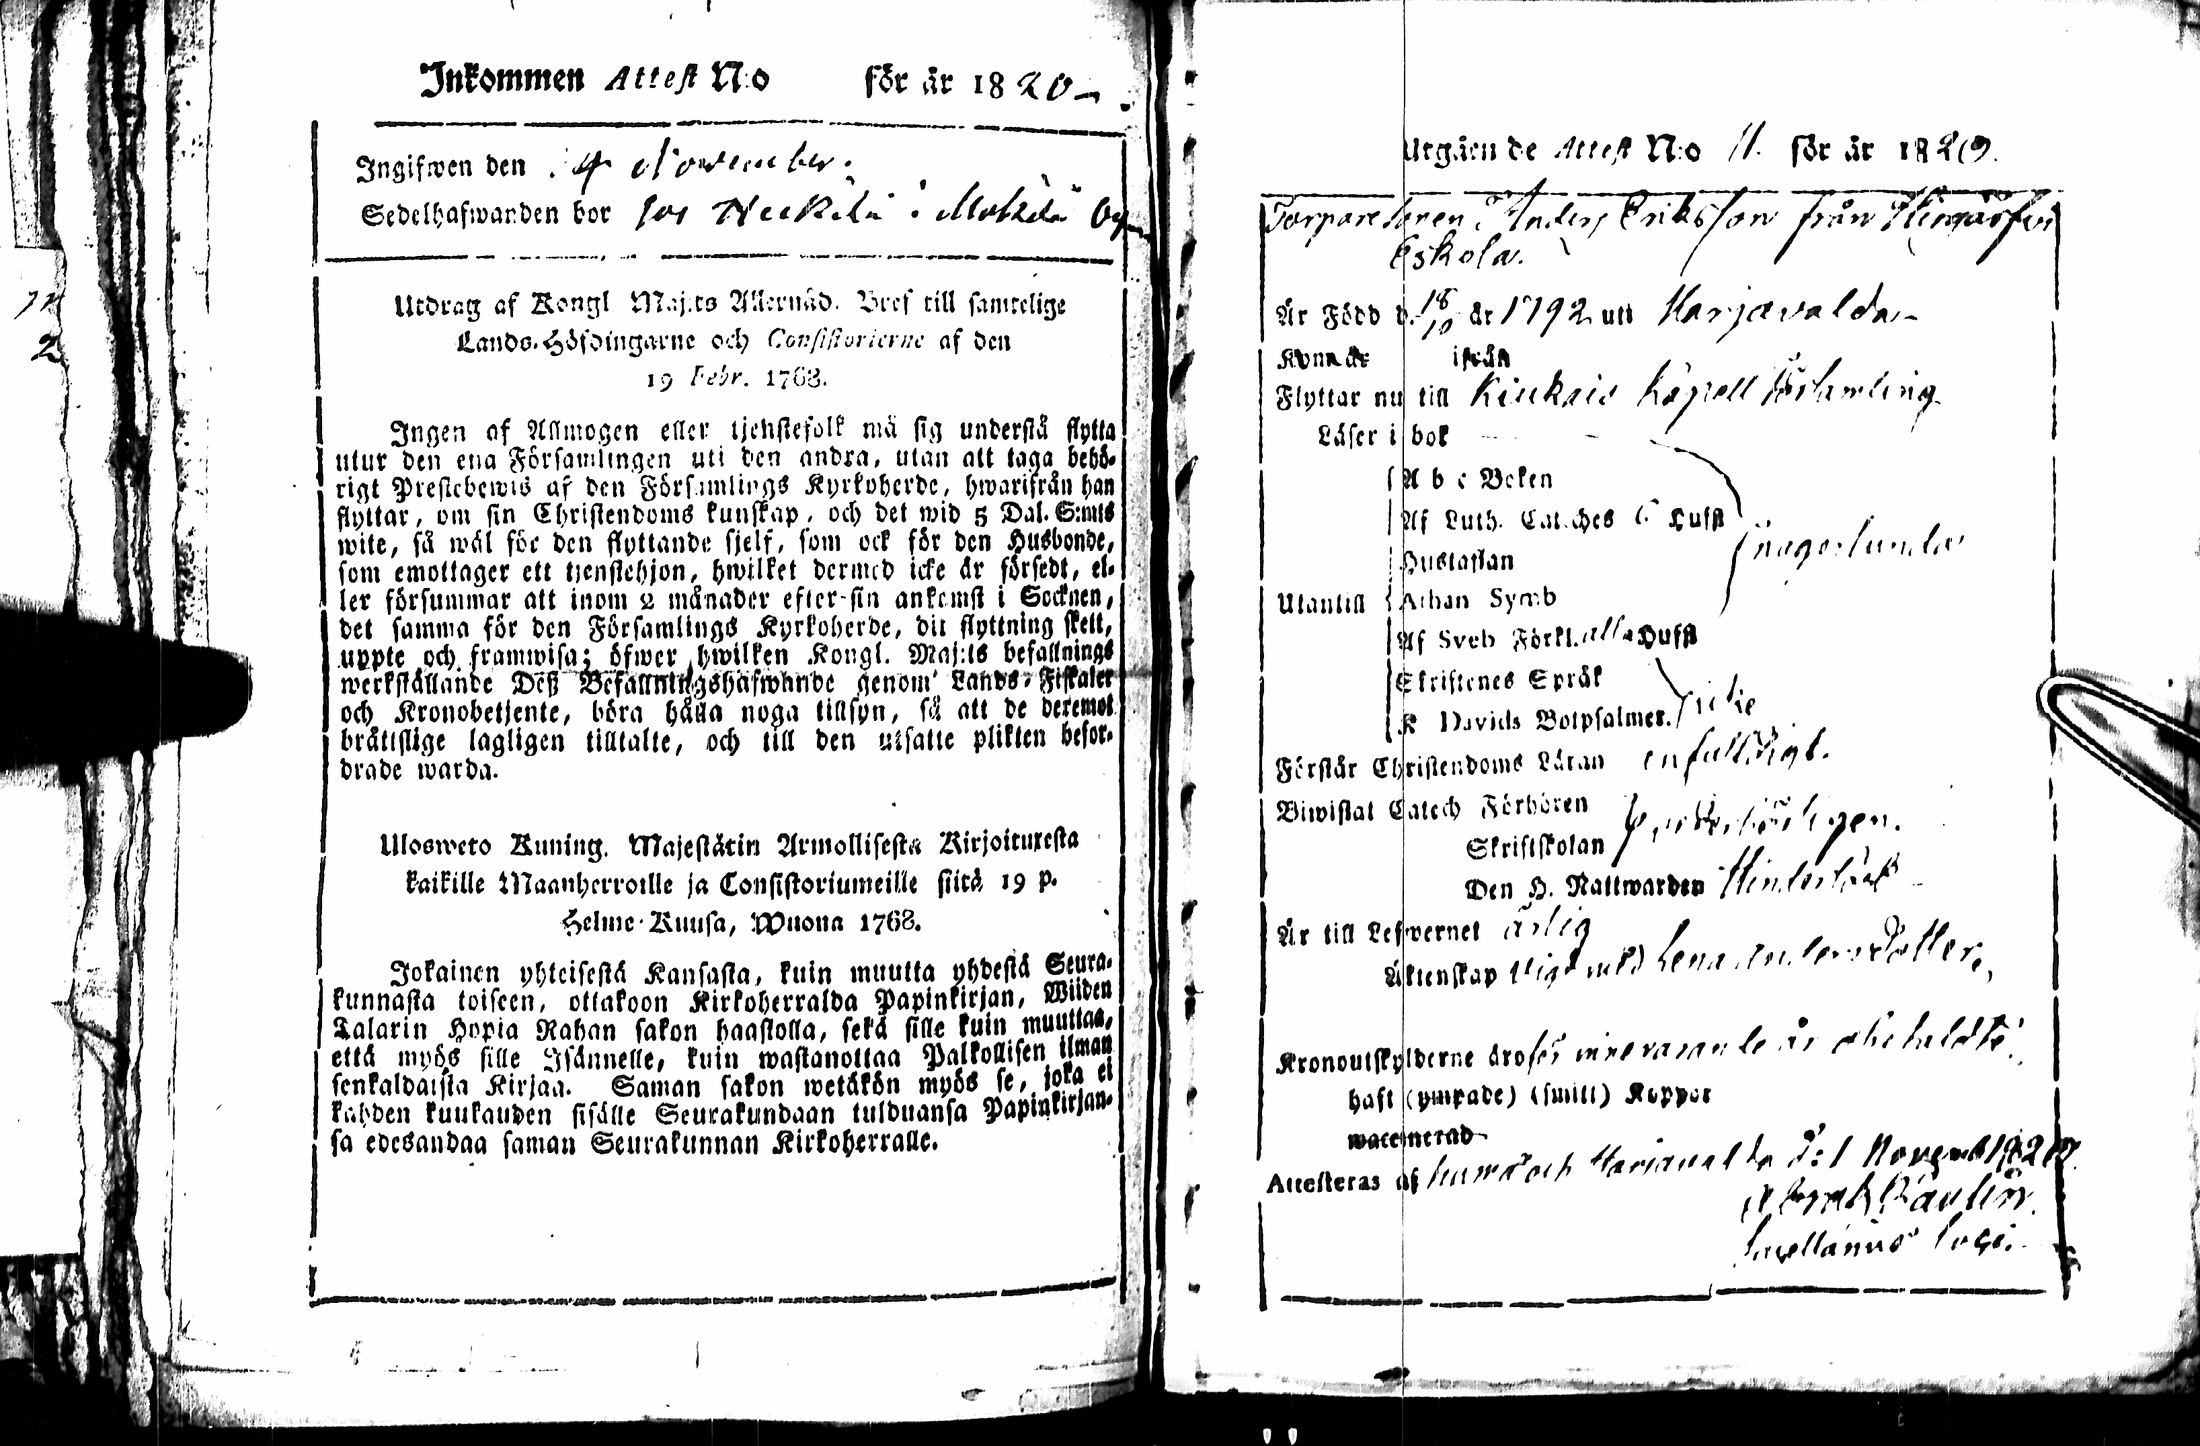 Inkommen Attest N:o för år 1820
Ingifwen den 4 November.
Sedelhafwanden bor hos i by
Utdrag af Kongl Maj:ts Allernåd. Bref till samtelige
Lands-Höfdingarne och Consistorierne af den
19 Febr. 1768.
Ingen af Allmogen eller tjenstefolk må sig understå flytta
utur den ena Församlingen uti den andra, utan att taga behö-
rigt Prestebewis af den Församlings Kyrkoherde, hwarifrån han
flyttar, om sin Christendoms kunskap, och det wid 5 Dal. S:mts
wite, så wäl för den flyttande sjelf, som ock för den Husbonde,
som emottager ett tjenstehjon, hwilket dermed icke är försedt, el-
ler försummar att inom 2 månader efter sin ankomst i Socknen,
det samma för den Församlings Kyrkoherde, dit flyttning skett,
uppte och framwisa; öfwer hwilken Kongl. Maj:ts befallnings
werkställande Deß Befallningshafwande genom Lands-Fiskaler
och Kronobetjente, böra hålla noga tillsyn, så att de deremot
bråttslige lagligen tilltalte, och till den utsatte plikten befor-
drade warda.
Ulosweto Kuning. Majestätin Armollisesta Kirjoituxesta
kaikille Maanherroille ja Consistoriumeille siitä 19 p.
Helme-Kuusa, Wuona 1768.
Jokainen yhteisestä Kansasta, kuin muutta yhdestä Seura-
kunnasta toiseen, ottakoon Kirkoherralda Papinkirjan, Wiiden
Talarin Hopia Rahan sakon haastolla, sekä sille kuin muuttaa,
että myös sille Isännelle, kuin wastanottaa Palkollisen ilman
senkaldaista Kirjaa. Saman sakon wetäkön myös se, joka ei
kahden kuukauden sisälle Seurakundaan tulduansa Papinkirjan-
sa edesandaa saman Seurakunnan Kirkoherralle.
Utgående Attest N:o 11. för år 1820.
Anders Eriksson från
Eskola.
Är Född d. 18/10 år 1792 uti Harjavalda
Kom år ifrån
Flyttar nu till Kiukais Kapell Församling
Läser i bok
A b c Boken
Af Luth. Cateches 6 Hufst
Hustaflan
någorlunda
Utantill Athan Symb
Af Sveb Förkl. alla Hufst
Skriftenes Språk
K Davids Botpsalmer.
Förstår Christendoms Läran enfaldigt.
Biwistat Catech Förhören
Skriftskolan
Den H. Nattwarden
Är till Lefwernet ärlig
Äktenskap Vigd med Lena
Kronoutskylderne äro för innevarande år
haft (ympade) (smitt) Koppor
waccinerad
Attesteras af Harjavalda d: 1 Novemb 1820.